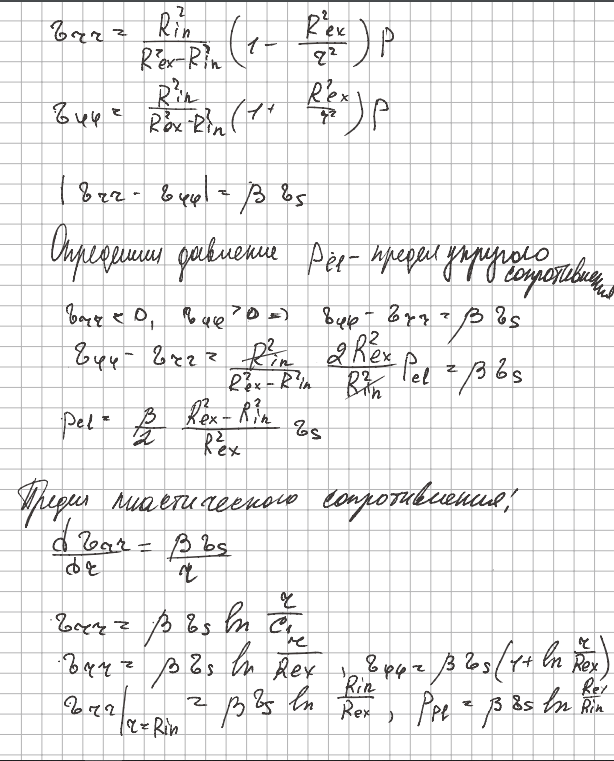 σ_rr = R²in / (R²ex − R²in) (1 − R²ex / r²) p
σ_φφ = R²in / (R²ex − R²in) (1 + R²ex / r²) p
|σ_rr − σ_φφ| = β σs
Определим давление p_el – предел упругого сопротивления
σ_rr < 0, σ_φφ > 0 => σ_φφ − σ_rr = β σs
σ_φφ − σ_rr = R²in / (R²ex − R²in) 2R²ex / R²in p_el = β σs
p_el = β/2 (R²ex − R²in) / R²ex σs
Предел пластического сопротивления:
dσ_rr / dr = β σs / r
σ_rr = β σs ln r / C₁
σ_rr = β σs ln r / Rex , σ_φφ = β σs (1 + ln r / Rex)
σ_rr |r=Rin = β σs ln Rin / Rex , p_pl = β σs ln Rex / Rin